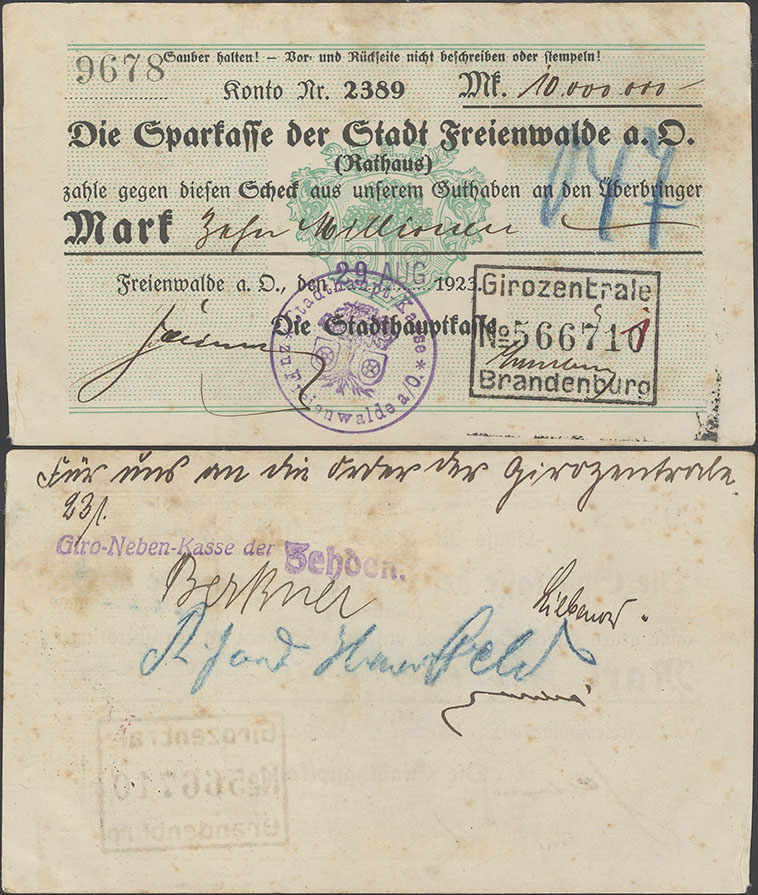 9678
Sauber halten! – Vor- und Rückseite nicht beschreiben oder stempeln!
Konto Nr. 2389 Mk. 10.000.000 –
Die Sparkasse der Stadt Freienwalde a. O.
(Rathaus)
zahle gegen diesen Scheck aus unserem Guthaben an den Überbringer
Mark Zehn Millionen
Freienwalde a. O., den 29 AUG. 1923.
Die Stadthauptkasse
Stadthaupt-Kasse
Freienwalde a/O.
Girozentrale
№ 566710
Brandenburg
Für uns an die Order der Girozentrale
Giro-Neben-Kasse der Zehden.
Girozentrale
№ 566710
Brandenburg